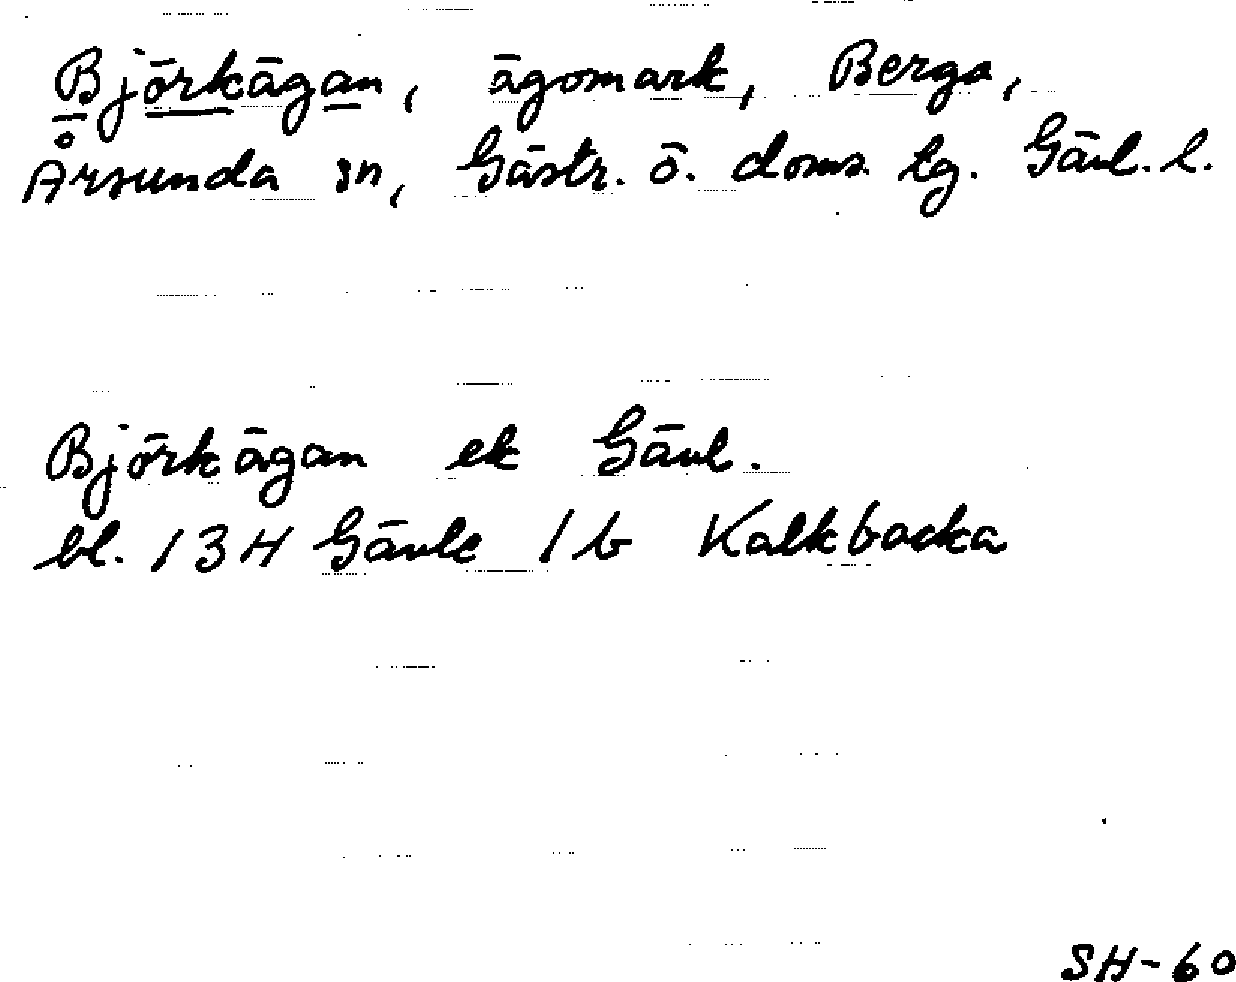 Björkägan, ägomark, Berga,
Årsunda sn, Gästr. ö. doms. tg. Gävl. l.
Björkägan ek Gävl.
bl. 13H Gävle 1b Kalkbacka
SH-60